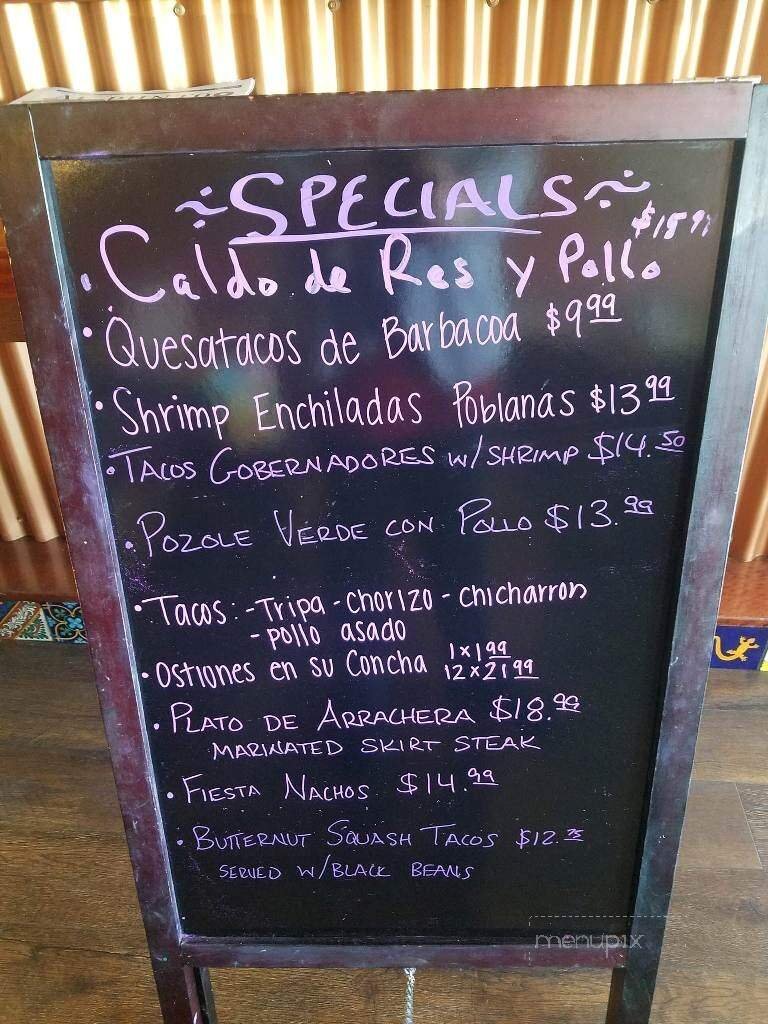 ~SPECIALS~
• Caldo de Res y Pollo
• Quesatacos de Barbacoa $9 99
• Shrimp Enchiladas Poblanas $13 99
• TACOS GOBERNADORES W/SHRIMP $14.50
• POZOLE VERDE CON POLLO $13.99
• Tacos: - Tripa - chorizo - chicharron
- pollo asado
• Ostiones en su Concha 1x1 99
12x21 99
• PLATO DE ARRACHERA $18.99
MARINATED SKIRT STEAK
• FIESTA NACHOS $14.99
• BUTTERNUT SQUASH TACOS $12.75
SERVED W/BLACK BEANS
menupix